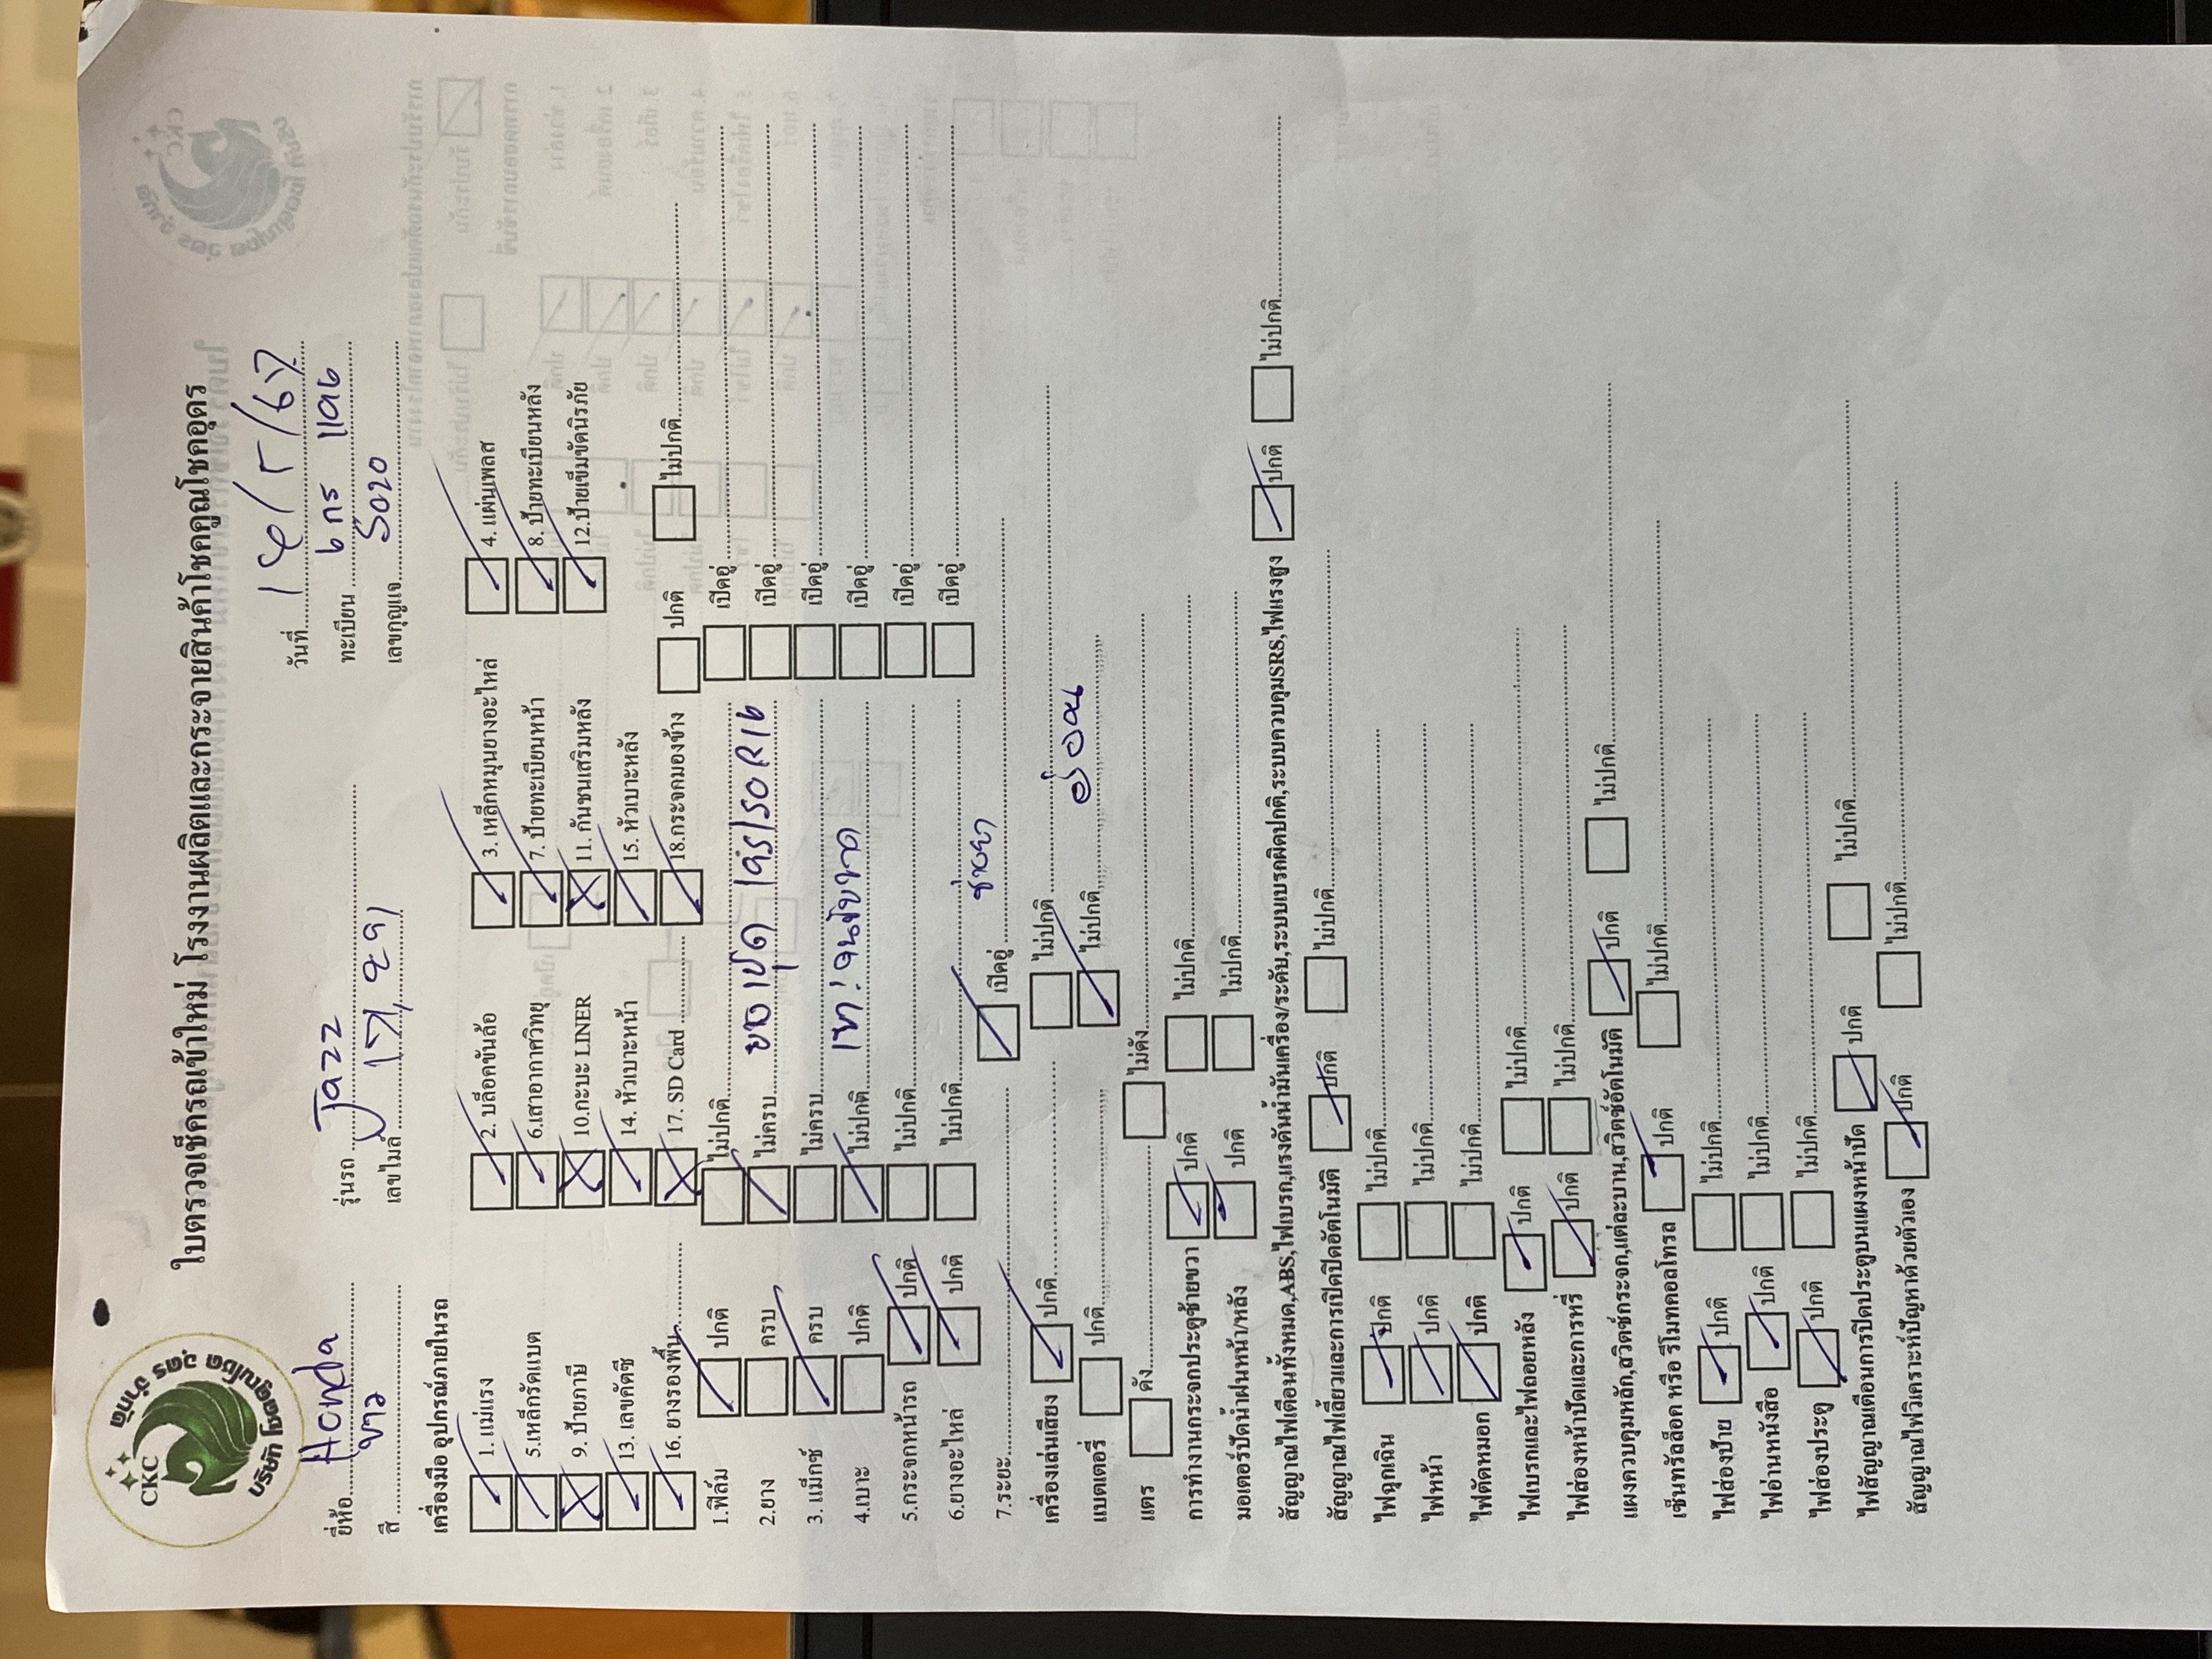 CKC
บริษัท โชคคูณโชค อุดร จำกัด
ใบตรวจเช็ครถเข้าใหม่ โรงงานผลิตและกระจายสินค้าโชคคูณโชคอุดร
วันที่
ยี่ห้อ Honda รุ่นรถ Jazz ทะเบียน 6 กร 1196
สี ขาว เลขไมล์ เลขกุญแจ 5020
เครื่องมือ อุปกรณ์ภายในรถ
1. แม่แรง 2. บล็อคขันล้อ 3. เหล็กหมุนยางอะไหล่ 4. แผ่นเพลส
5.เหล็กรัดแบต 6.เสาอากาศวิทยุ 7. ป้ายทะเบียนหน้า 8. ป้ายทะเบียนหลัง
9. ป้ายภาษี 10.กะบะ LINER 11. กันชนเสริมหลัง 12.ป้ายเข็มขัดนิรภัย
13. เลขคัตซี 14. หัวเบาะหน้า 15. หัวเบาะหลัง
16. ยางรองพื้น 17. SD Card 18.กระจกมองข้าง ปกติ ไม่ปกติ
1.ฟิล์ม ปกติ ไม่ปกติ เปิดอยู่
2.ยาง ครบ ไม่ครบ เปิดอยู่
3. แม็กซ์ ครบ ไม่ครบ เปิดอยู่
4.เบาะ ปกติ ไม่ปกติ เปิดอยู่
5.กระจกหน้ารถ ปกติ ไม่ปกติ เปิดอยู่
6.ยางอะไหล่ ปกติ ไม่ปกติ เปิดอยู่
7.ระยะ เปิดอยู่
เครื่องเล่นเสียง ปกติ ไม่ปกติ
แบตเตอรี่ ปกติ ไม่ปกติ อ่อน
แตร ดัง ไม่ดัง
การทำงานกระจกประตูซ้ายขวา ปกติ ไม่ปกติ
มอเตอร์ปัดน้ำฝนหน้า/หลัง ปกติ ไม่ปกติ
สัญญาณไฟเตือนทั้งหมด,ABS,ไฟเบรก,แรงดันน้ำมันเครื่อง/ระดับ,ระบบเบรกผิดปกติ,ระบบควบคุมSRS,ไฟแรงสูง ปกติ ไม่ปกติ
สัญญาณไฟเลี้ยวและการเปิดปิดอัตโนมัติ ปกติ ไม่ปกติ
ไฟฉุกเฉิน ปกติ ไม่ปกติ
ไฟหน้า ปกติ ไม่ปกติ
ไฟตัดหมอก ปกติ ไม่ปกติ
ไฟเบรกและไฟถอยหลัง ปกติ ไม่ปกติ
ไฟส่องหน้าปัดและการหรี่ ปกติ ไม่ปกติ
แผงควบคุมหลัก,สวิตซ์กระจก,แต่ละบาน,สวิตซ์อัตโนมัติ ปกติ ไม่ปกติ
เซ็นทรัลล็อค หรือ รีโมทคอลโทรล ปกติ ไม่ปกติ
ไฟส่องป้าย ปกติ ไม่ปกติ
ไฟอ่านหนังสือ ปกติ ไม่ปกติ
ไฟส่องประตู ปกติ ไม่ปกติ
ไฟสัญญาณเตือนการปิดประตูบนแผงหน้าปัด ปกติ ไม่ปกติ
สัญญาณไฟวิเคราะห์ปัญหาด้วยตัวเอง ปกติ ไม่ปกติ